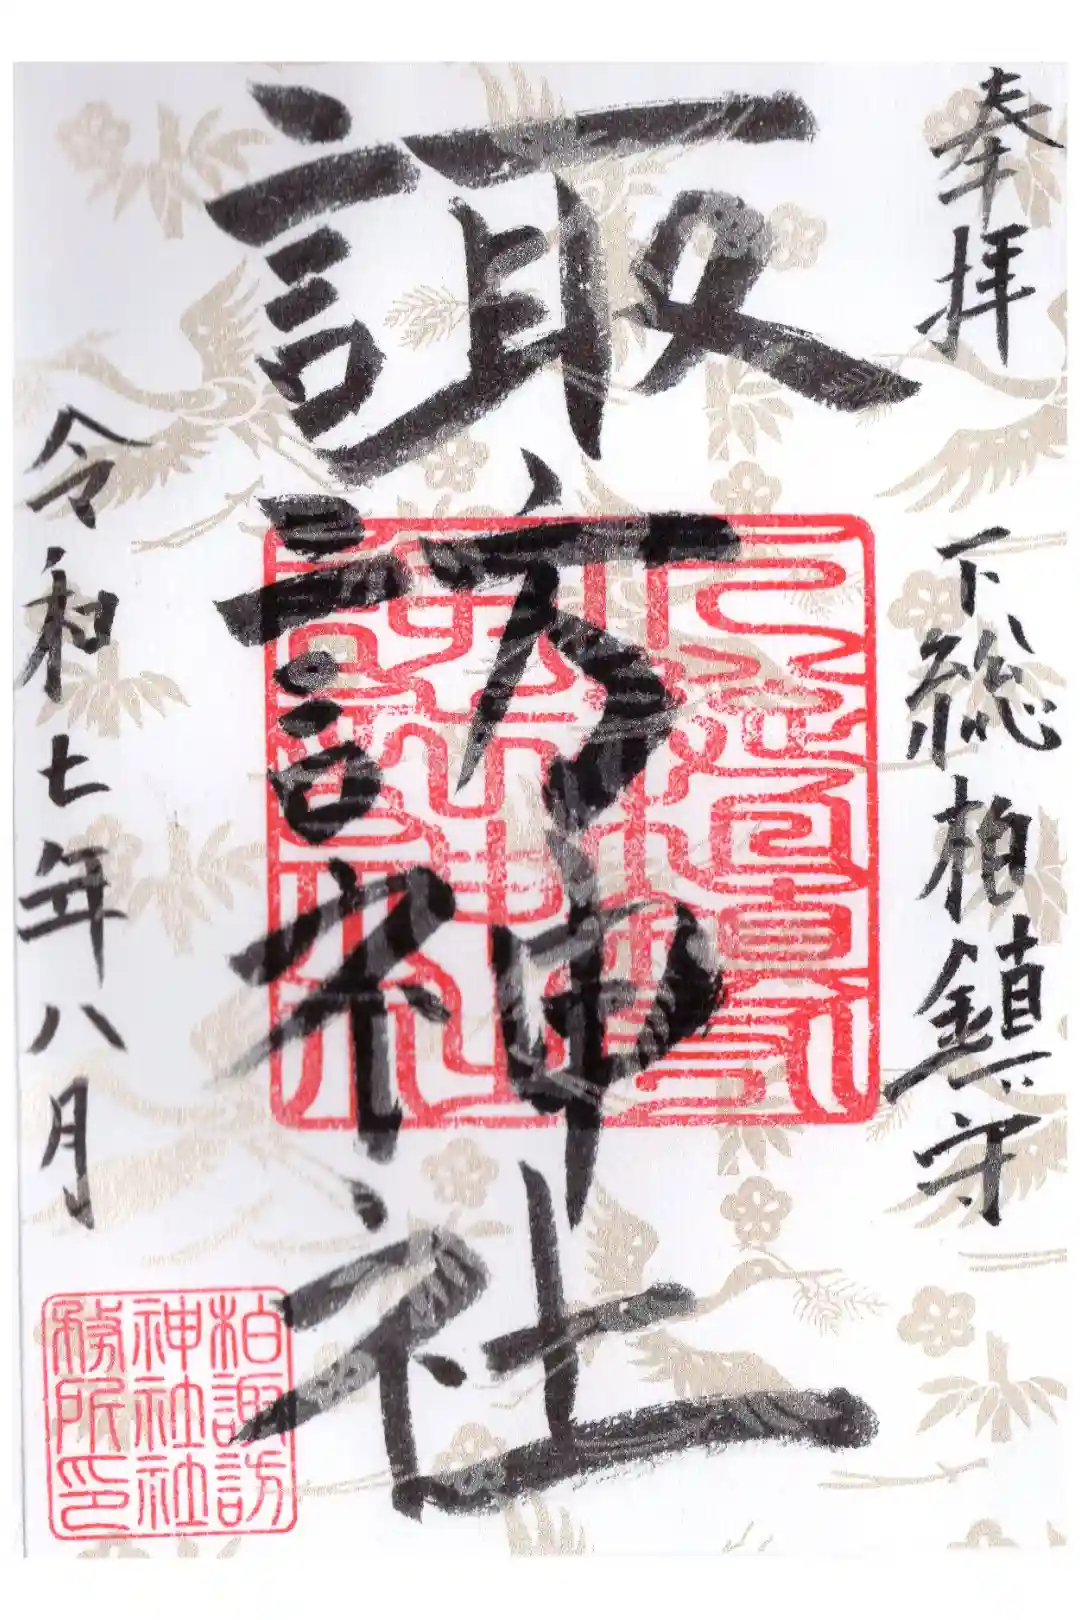 奉拝
下総柏鎮守
諏訪神社
令和七年八月
柏諏訪
神社社
務所印